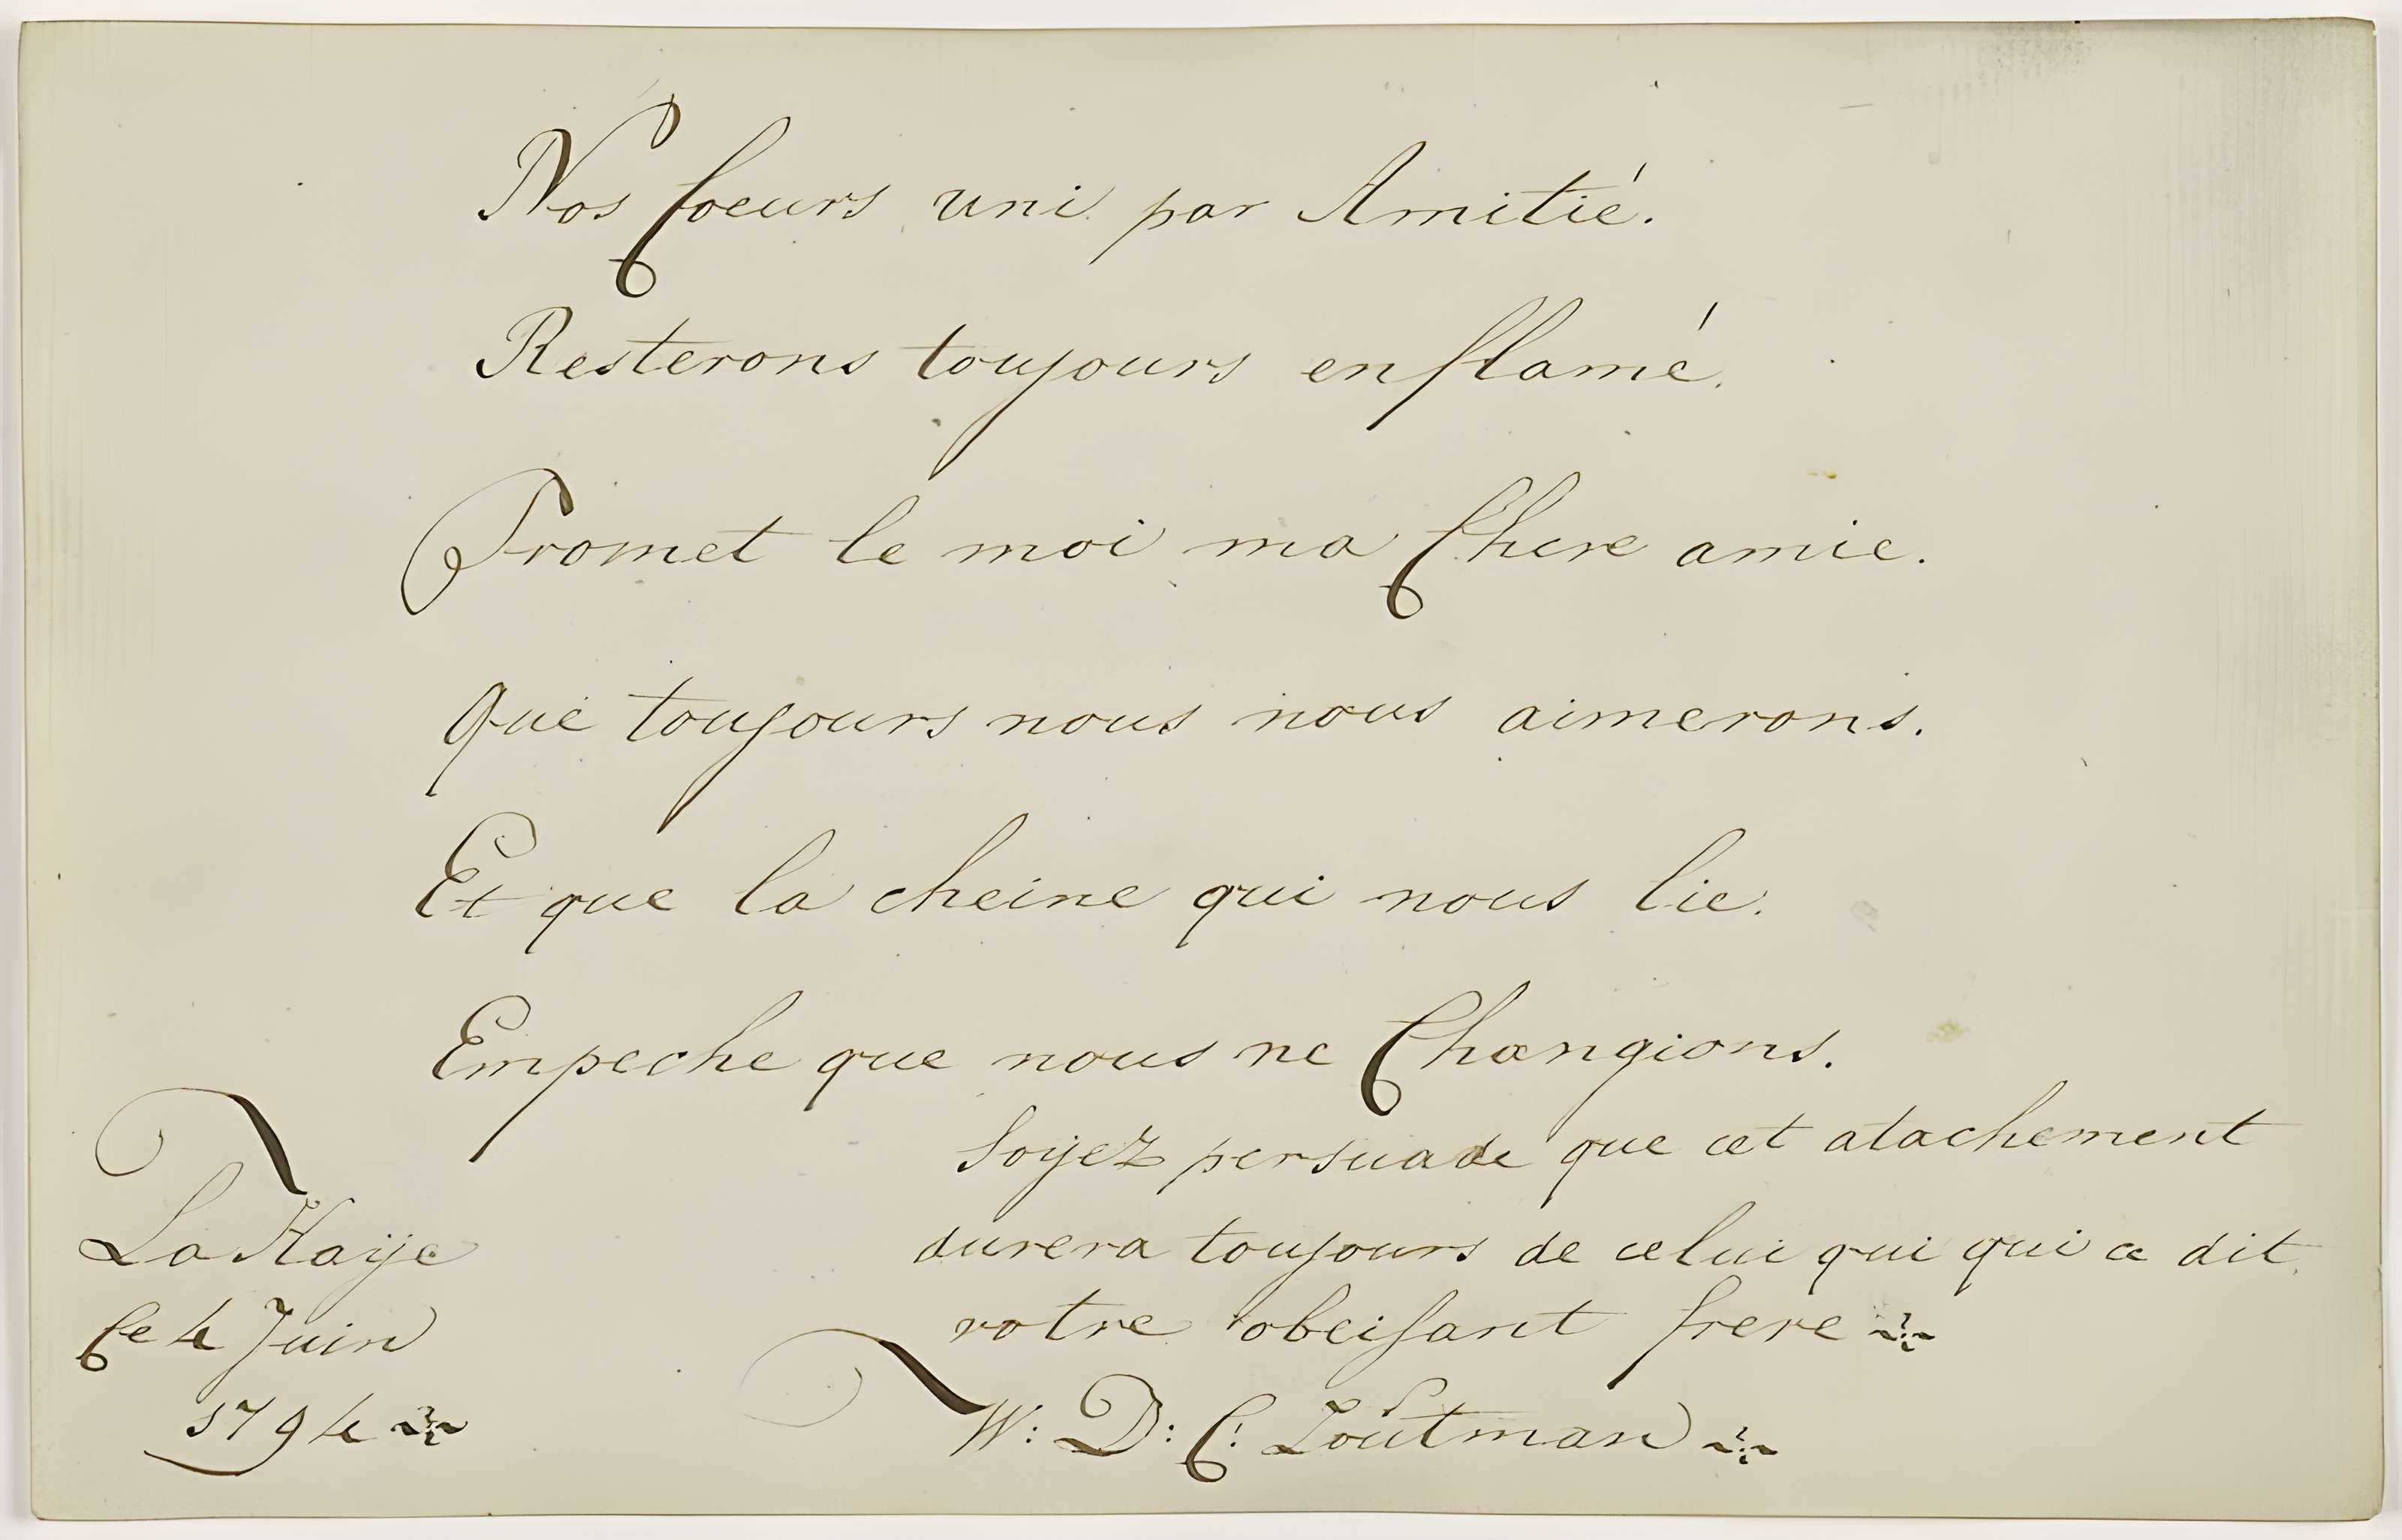 Nos Coeurs uni par Amitié.
Resterons toujours enflamé.
Promet le moi ma Chere amie.
Que toujours nous nous aimerons.
Et que la cheine qui nous lie.
Empeche que nous ne Changions.
Soyez persuade que cet atachement
durera toujours de celui qui qui ce dit
votre obeisant frere
W: D: C: Zoutman
La Haije
Ce 4 Juin
1794